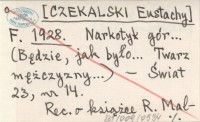 [CZEKALSKI Eustachy]
F. 1928. Narkotyk gór...
(Będzie, jak było... Twarz
mężczyzny...) — Świat
23, nr 14.
Rec. o książce R. Mal-